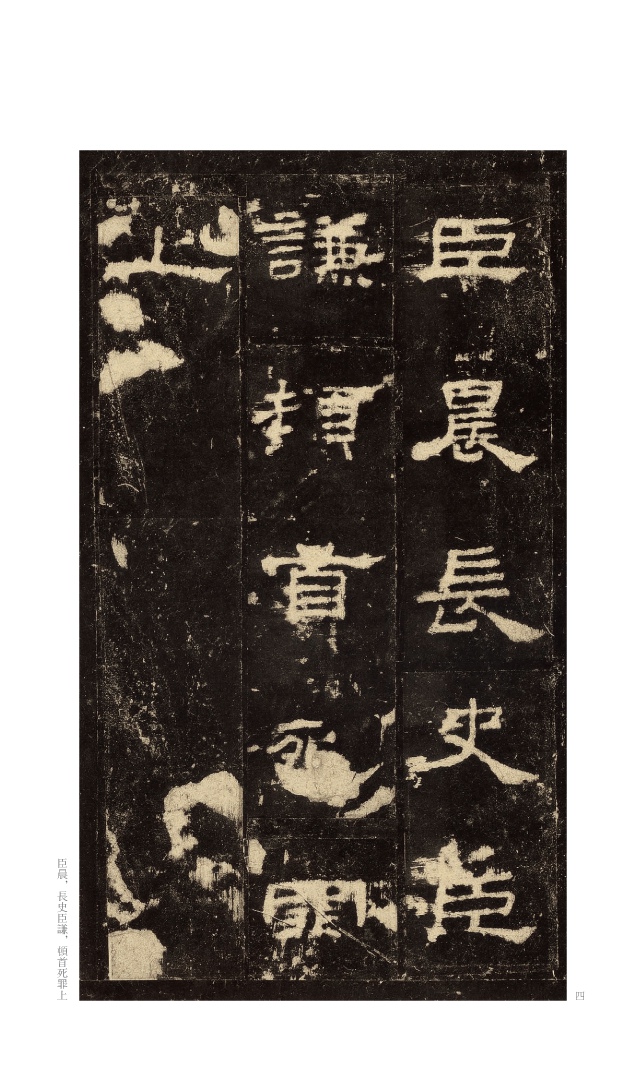 臣晨長史臣
謙頓首死罪
上
臣晨，長史臣謙，頓首死罪上
四